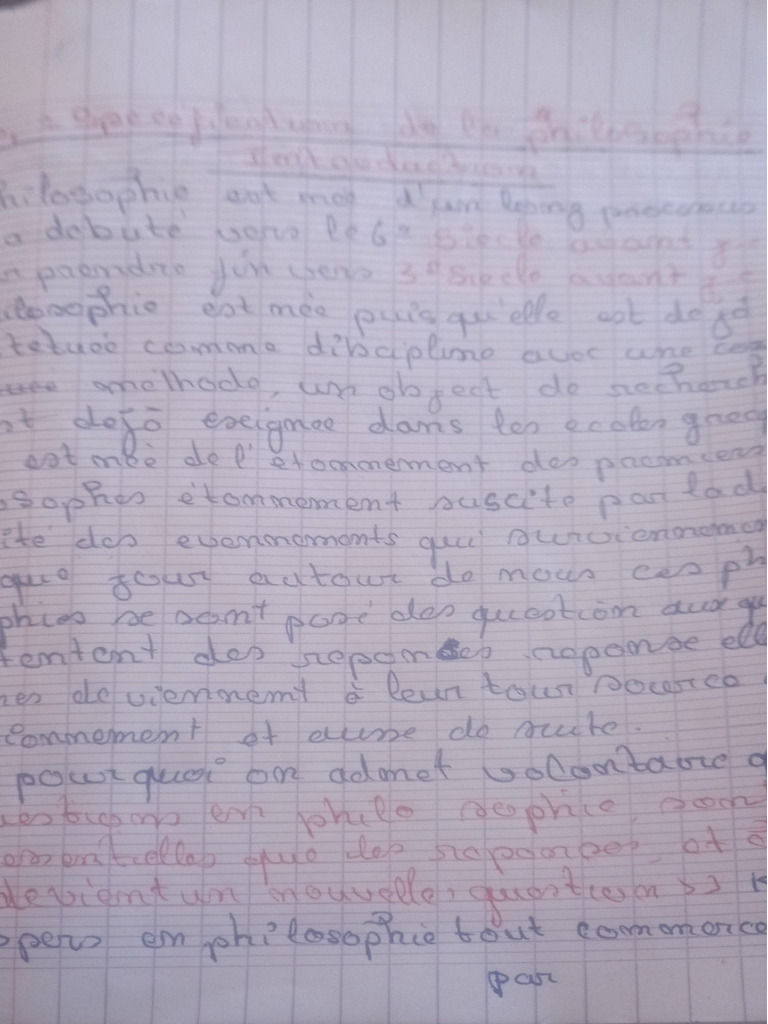 de la philosophie
Introduction
hilosophie est née d'un long processus
a debuté vers le 6e siecle avant J-
prendre fin vers 3e siecle avant J-
ilosophie est née puis qu'elle est dejà
tetuée comme dicipline avec une
methode, un object de recherch
t dejà eseignee dans les ecoles grec
est née de l'etonnement des premiers
osophes etonnement suscite par la d
ité des evennements qui surviennemen
que jour autour de nous ces ph
phies se sont posé des question aux qu
tentent des reponses reponse elle
es deviennent à leur tour source
tonnement et ainse de suite.
pourquoi on admet volontaire q
uestions en philosophie son
essentielles que les reponses et c
devient un nouvelle, question >> K
spers en philosophie tout commence
par